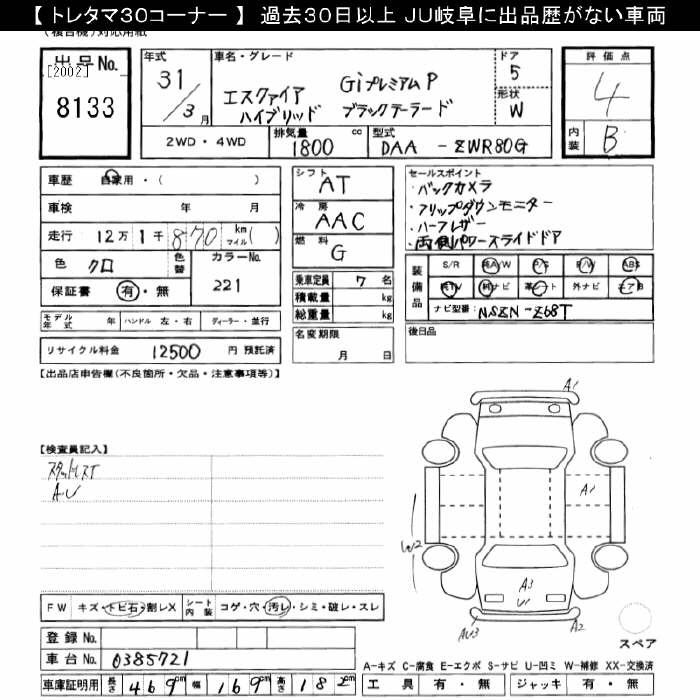 【 トレタマ30コーナー 】 過去30日以上 JU岐阜に出品歴がない車両
(複合機)対応用紙
出品No.
[2002]
8133
年式
31/3月
車名・グレード
エスクァイア GiプレミアムP
ハイブリッド ブラックテーラード
ドア
5
形状
W
2WD・4WD
排気量
1800 cc
型式
DAA - ZWR80G
評価点
4
内装
B
車歴 自家用・( )
車検 年 月
走行 12万1千870 km マイル( )
色 クロ
色替
カラーNo.
221
保証書 有・無
モデル年式 年 ハンドル 左・右 ディーラー・並行
リサイクル料金 12500 円 預託済
シフト
AT
冷房
AAC
燃料
G
乗車定員 7 名
積載量 kg
総重量 kg
名変期限
月 日
セールスポイント
・バックカメラ
・フリップダウンモニター
・ハーフレザー
・両側パワースライドドア
装備品
S/R 純A/W P/S P/W ABS
純TV 純ナビ 革シート 外ナビ エアB
ナビ型番: NSZN-Z68T
後日品
【出品店申告欄(不良箇所・欠品・注意事項等)】
【検査員記入】
スタットレスT
AU
A1
A1
W2
A3
U
AU3
A2
スペア
FW キズ・トビ石・割レX
シート内装 コゲ・穴・汚レ・シミ・破レ・スレ
登録No.
車台No. 0385721
車庫証明用 長さ 469cm 幅 169cm 高さ 182cm
A-キズ C-腐食 E-エクボ S-サビ U-凹ミ W-補修 XX-交換済
工具 有・無 ジャッキ 有・無